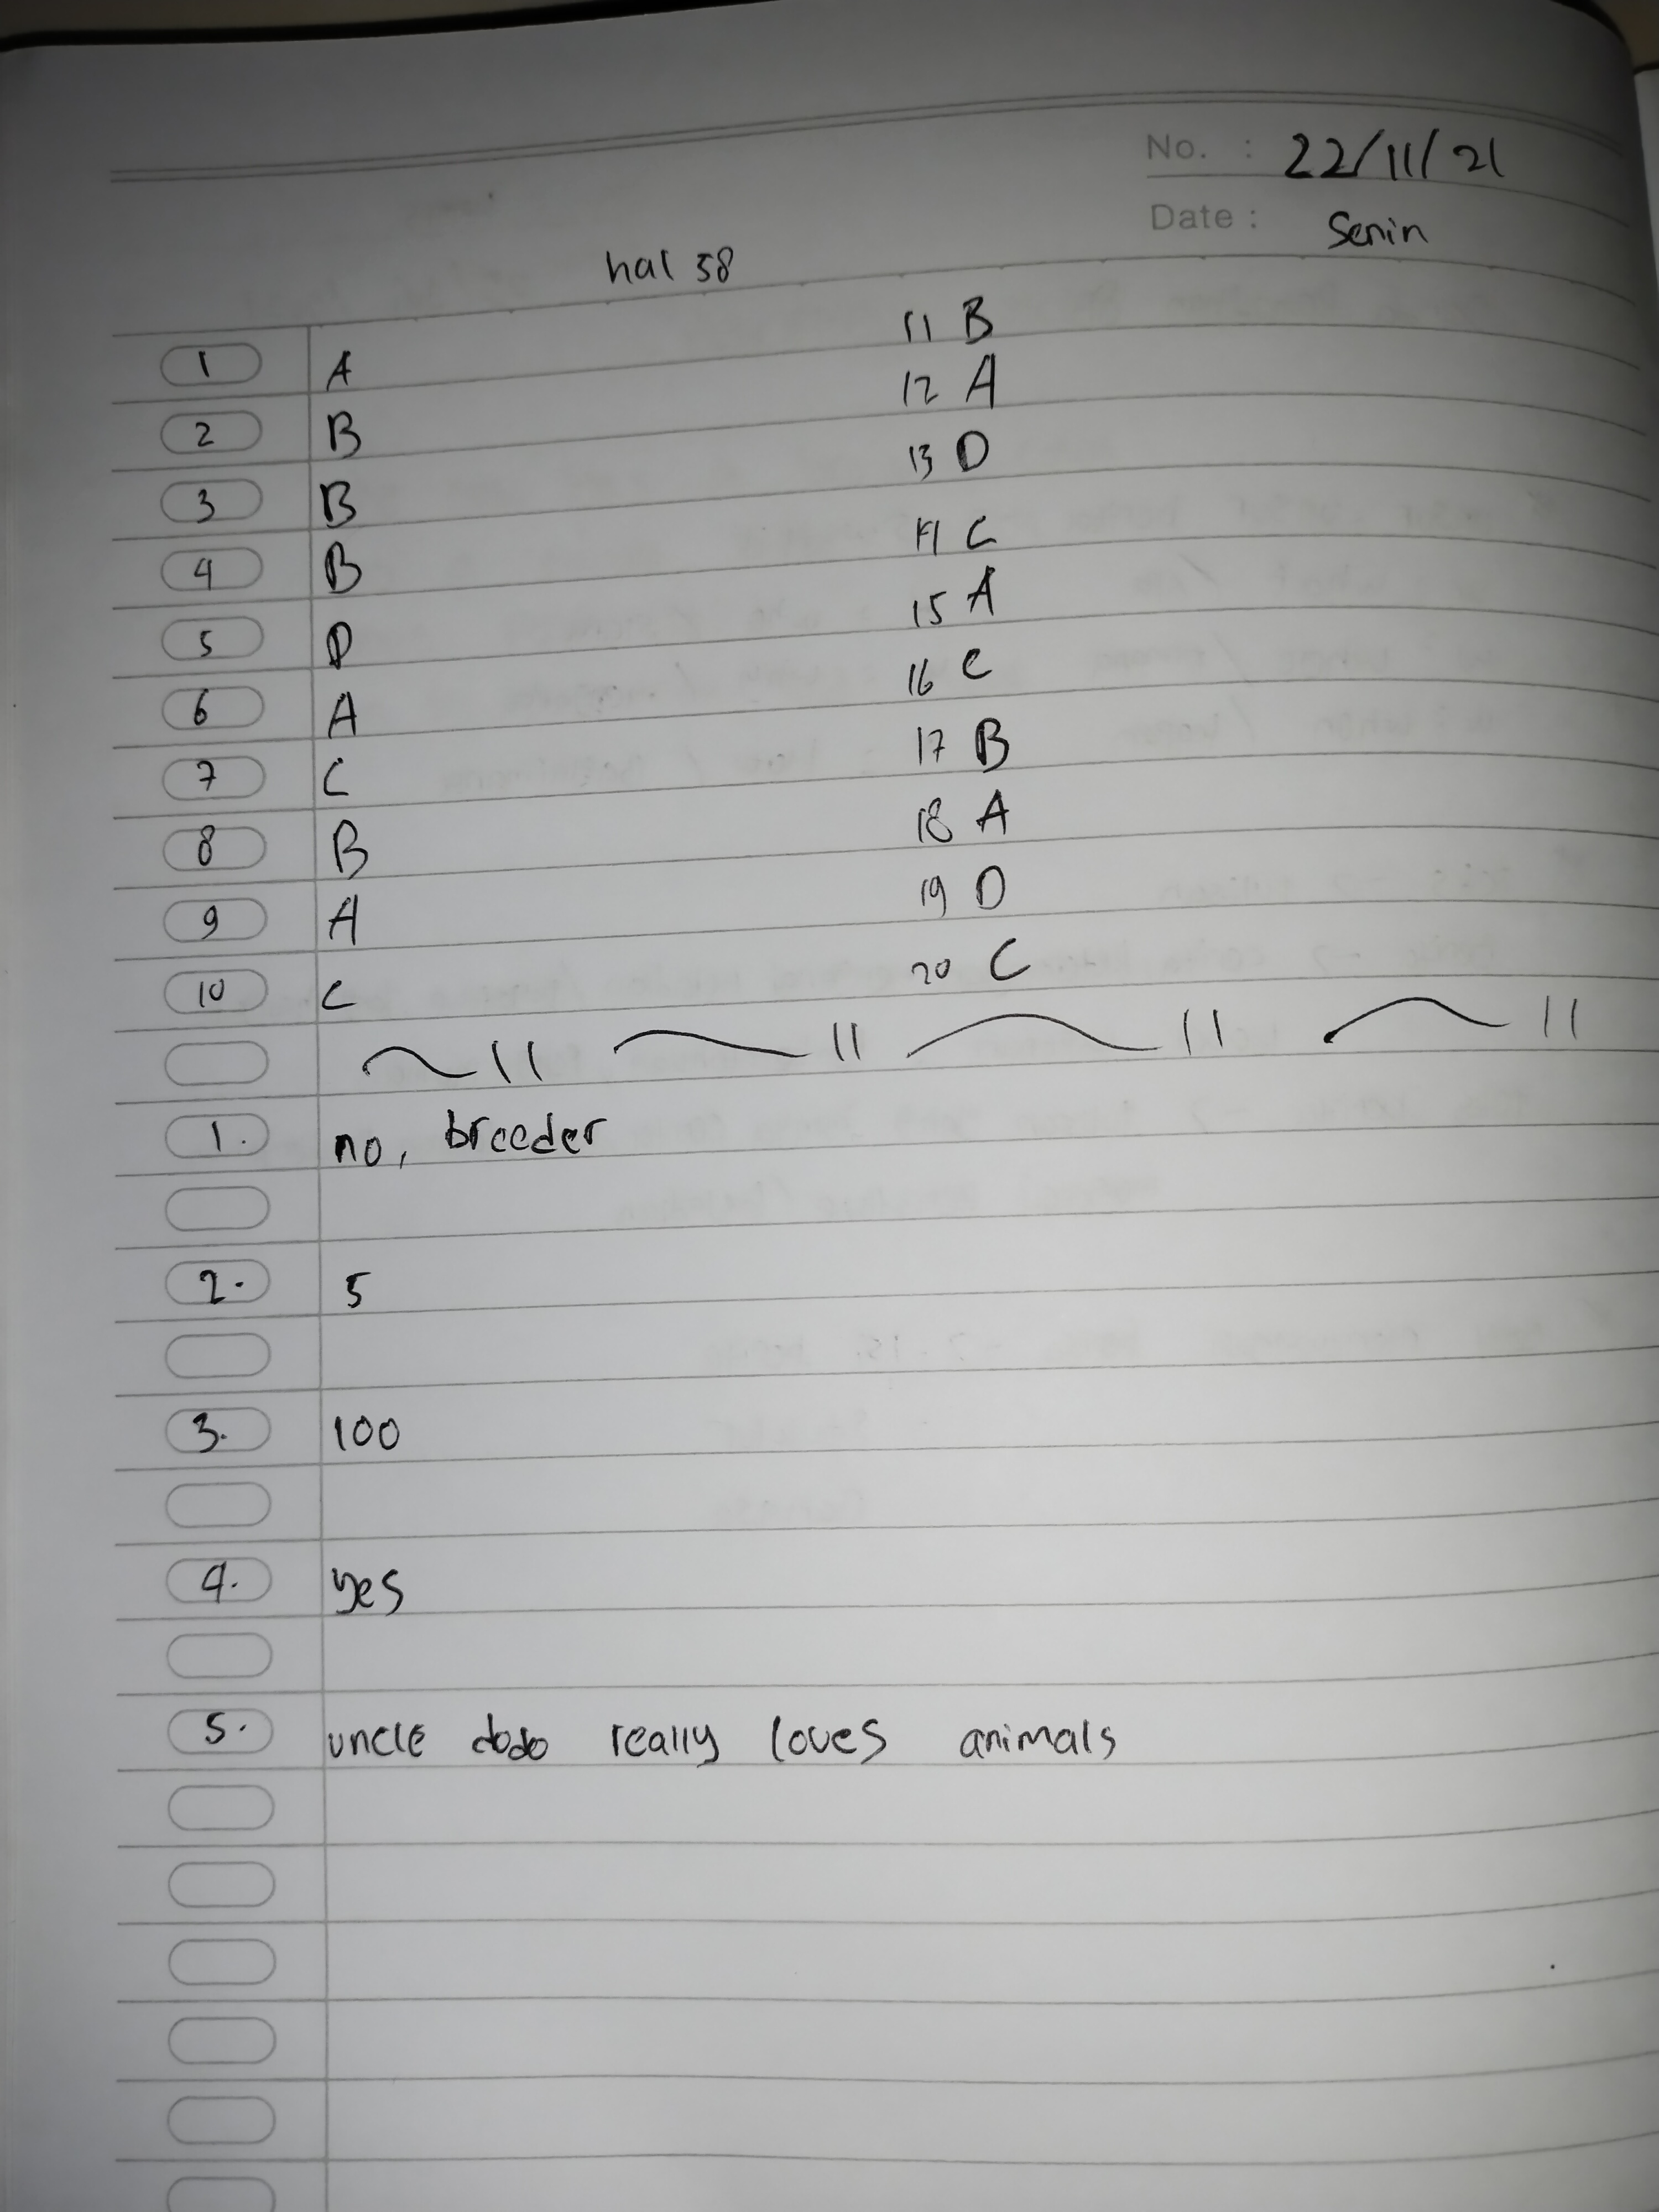 No. : 22/11/21
Date : Senin
hal 58
1 A
2 B
3 B
4 B
5 D
6 A
7 C
8 B
9 A
10 C
11 B
12 A
13 D
14 C
15 A
16 C
17 B
18 A
19 D
20 C
1. no, breeder
2. 5
3. 100
4. yes
5. uncle dodo really loves animals